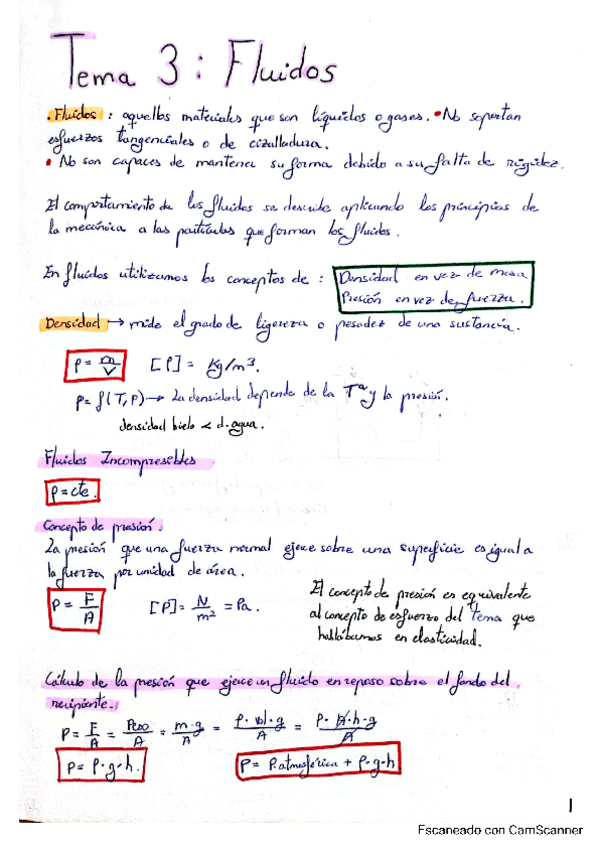 Tema 3: Fluidos
• Fluidos : aquellos materiales que son líquidos o gases. • No soportan
esfuerzos tangenciales o de cizalladura.
• No son capaces de mantener su forma debido a su falta de rigidez.
El comportamiento de los fluidos se describe aplicando los principios de
la mecánica a las partículas que forman los fluidos.
En fluidos utilizamos los conceptos de : Densidad en vez de masa
Presión en vez de fuerza.
Densidad → mide el grado de ligereza o pesadez de una sustancia.
ρ = m/V [ρ] = Kg/m³.
ρ = f(T,P) → La densidad depende de la Tª y la presión.
densidad hielo < d. agua.
Fluidos Incompresibles
ρ = cte.
Concepto de presión.
La presión que una fuerza normal ejerce sobre una superficie es igual a
la fuerza por unidad de área.
P = F/A [P] = N/m² = Pa.
El concepto de presión es equivalente
al concepto de esfuerzo del tema que
hablábamos en elasticidad.
Cálculo de la presión que ejerce un fluido en reposo sobre el fondo del
recipiente.
P = F/A = Peso/A = m·g/A = ρ·vol·g/A = ρ·A·h·g/A
P = ρ·g·h. P = P.atmosférica + ρ·g·h
1
Escaneado con CamScanner